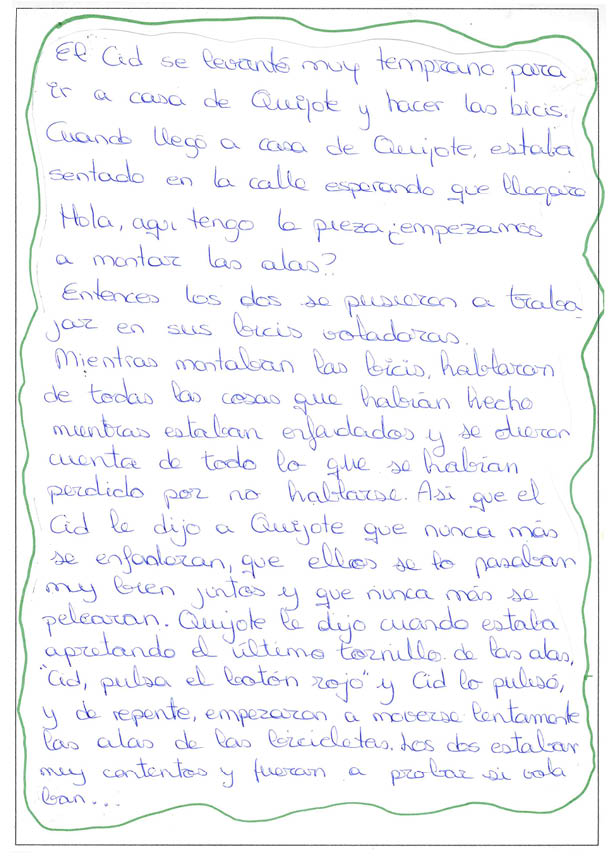 El Cid se levantó muy temprano para
ir a casa de Quijote y hacer las bicis.
Cuando llegó a casa de Quijote, estaba
sentado en la calle esperando que llegara
Hola, aquí tengo la pieza ¿empezamos
a montar las alas?
Entonces los dos se pusieron a traba
jar en sus bicis voladoras.
Mientras montaban las bicis, hablaron
de todas las cosas que habían hecho
mientras estaban enfadados y se dieron
cuenta de todo lo que se habían
perdido por no hablarse. Así que el
Cid le dijo a Quijote que nunca más
se enfadaran, que ellos se lo pasaban
muy bien juntos y que nunca más se
pelearan. Quijote le dijo cuando estaba
apretando el último tornillo de las alas,
"Cid, pulsa el botón rojo" y Cid lo pulsó,
y de repente, empezaron a moverse lentamente
las alas de las bicicletas. Los dos estaban
muy contentos y fueron a probar si vola
ban...